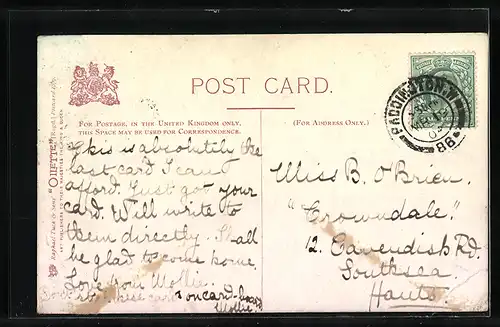 POST CARD.
FOR POSTAGE, IN THE UNITED KINGDOM ONLY,
THIS SPACE MAY BE USED FOR CORRESPONDENCE.
(FOR ADDRESS ONLY.)
This is absolutely the
last card I can
afford. Just got your
card. Will write to
them directly. Shall
be glad to come home.
Love from Mollie.
on card-board
Mollie
Miss B. O'Brien.
"Crowndale."
12. Cavendish Rd.
Southsea
Hants.
PADDINGTON. W
"OILETTE"